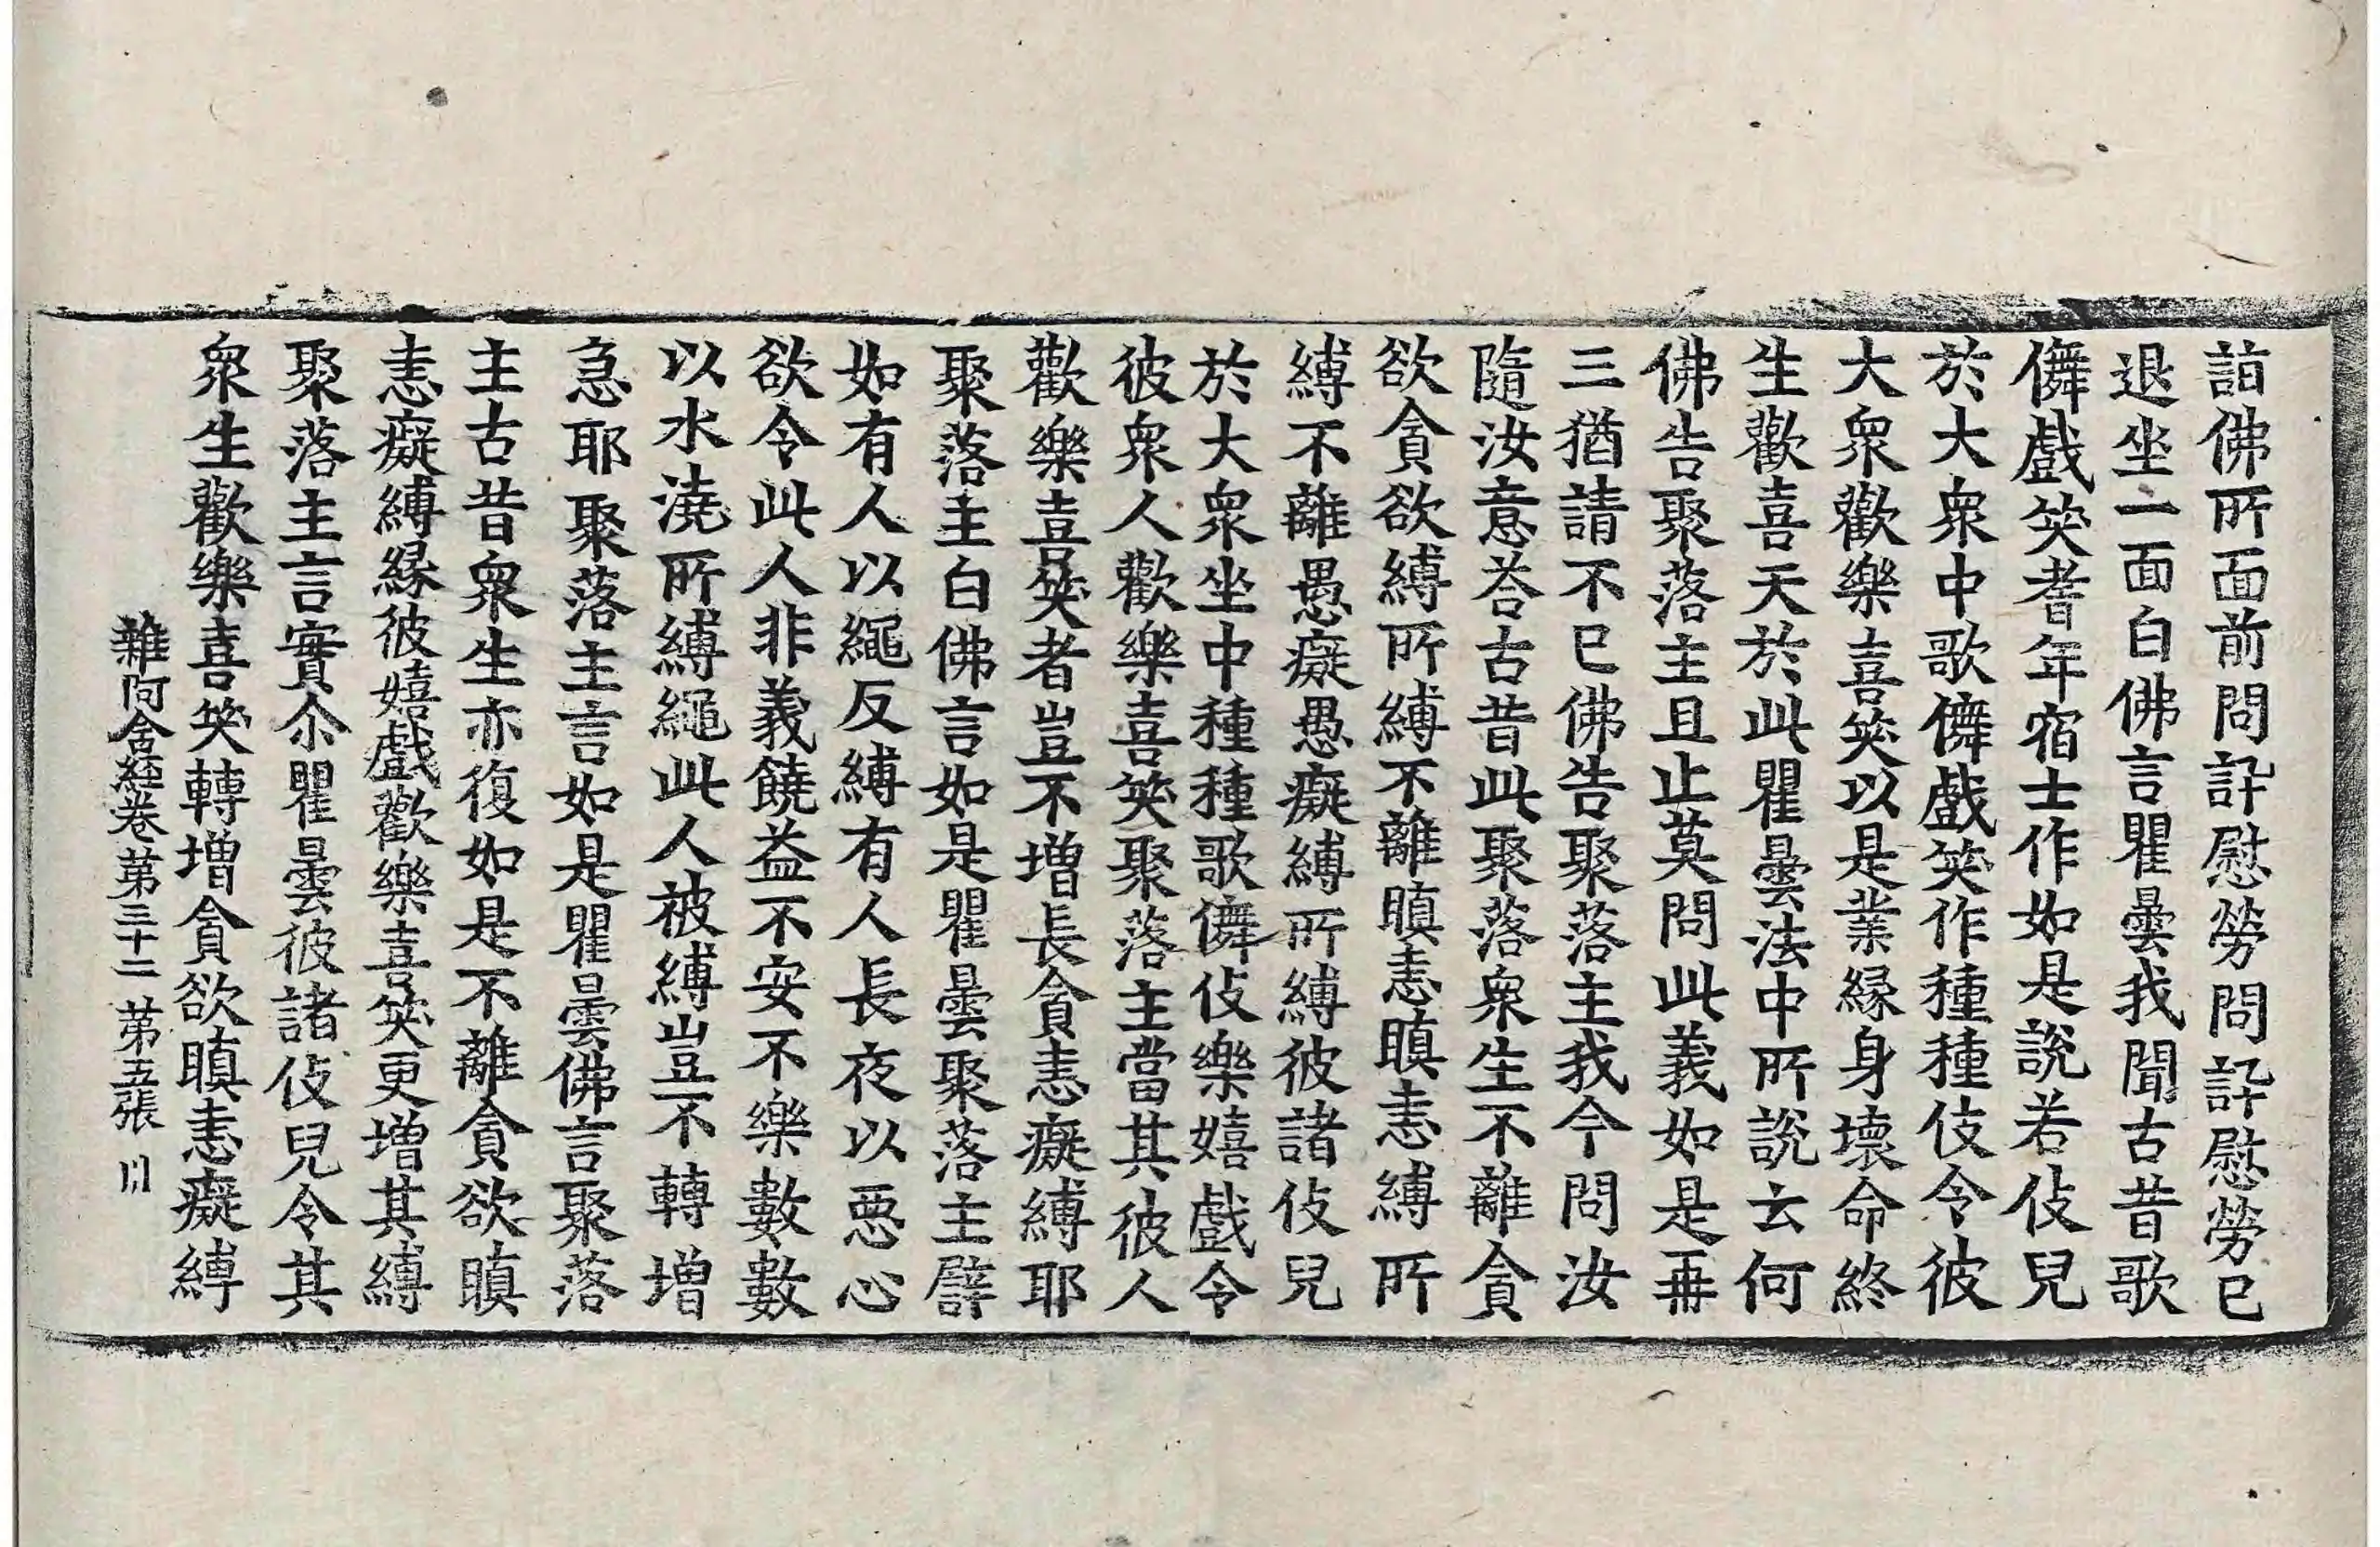 詣佛所面前問訊慰勞問訊慰勞已
退坐一面白佛言瞿曇我聞古昔歌
儛戲笑耆年宿士作如是說若伎兒
於大衆中歌儛戲笑作種種伎令彼
大衆歡樂喜笑以是業緣身壞命終
生歡喜天於此瞿曇法中所說云何
佛告聚落主且止莫問此義如是再
三猶請不已佛告聚落主我今問汝
隨汝意荅古昔此聚落衆生不離貪
欲貪欲縛所縛不離瞋恚瞋恚縛所
縛不離愚癡愚癡縛所縛彼諸伎兒
於大衆坐中種種歌儛伎樂嬉戲令
彼衆人歡樂喜笑聚落主當其彼人
歡樂喜笑者豈不增長貪恚癡縛耶
聚落主白佛言如是瞿曇聚落主譬
如有人以繩反縛有人長夜以惡心
欲令此人非義饒益不安不樂數數
以水澆所縛繩此人被縛豈不轉增
急耶聚落主言如是瞿曇佛言聚落
主古昔衆生亦復如是不離貪欲瞋
恚癡縛緣彼嬉戲歡樂喜笑更增其縛
聚落主言實尒瞿曇彼諸伎兒令其
衆生歡樂喜笑轉增貪欲瞋恚癡縛
雜阿含經卷第三十二 第五張